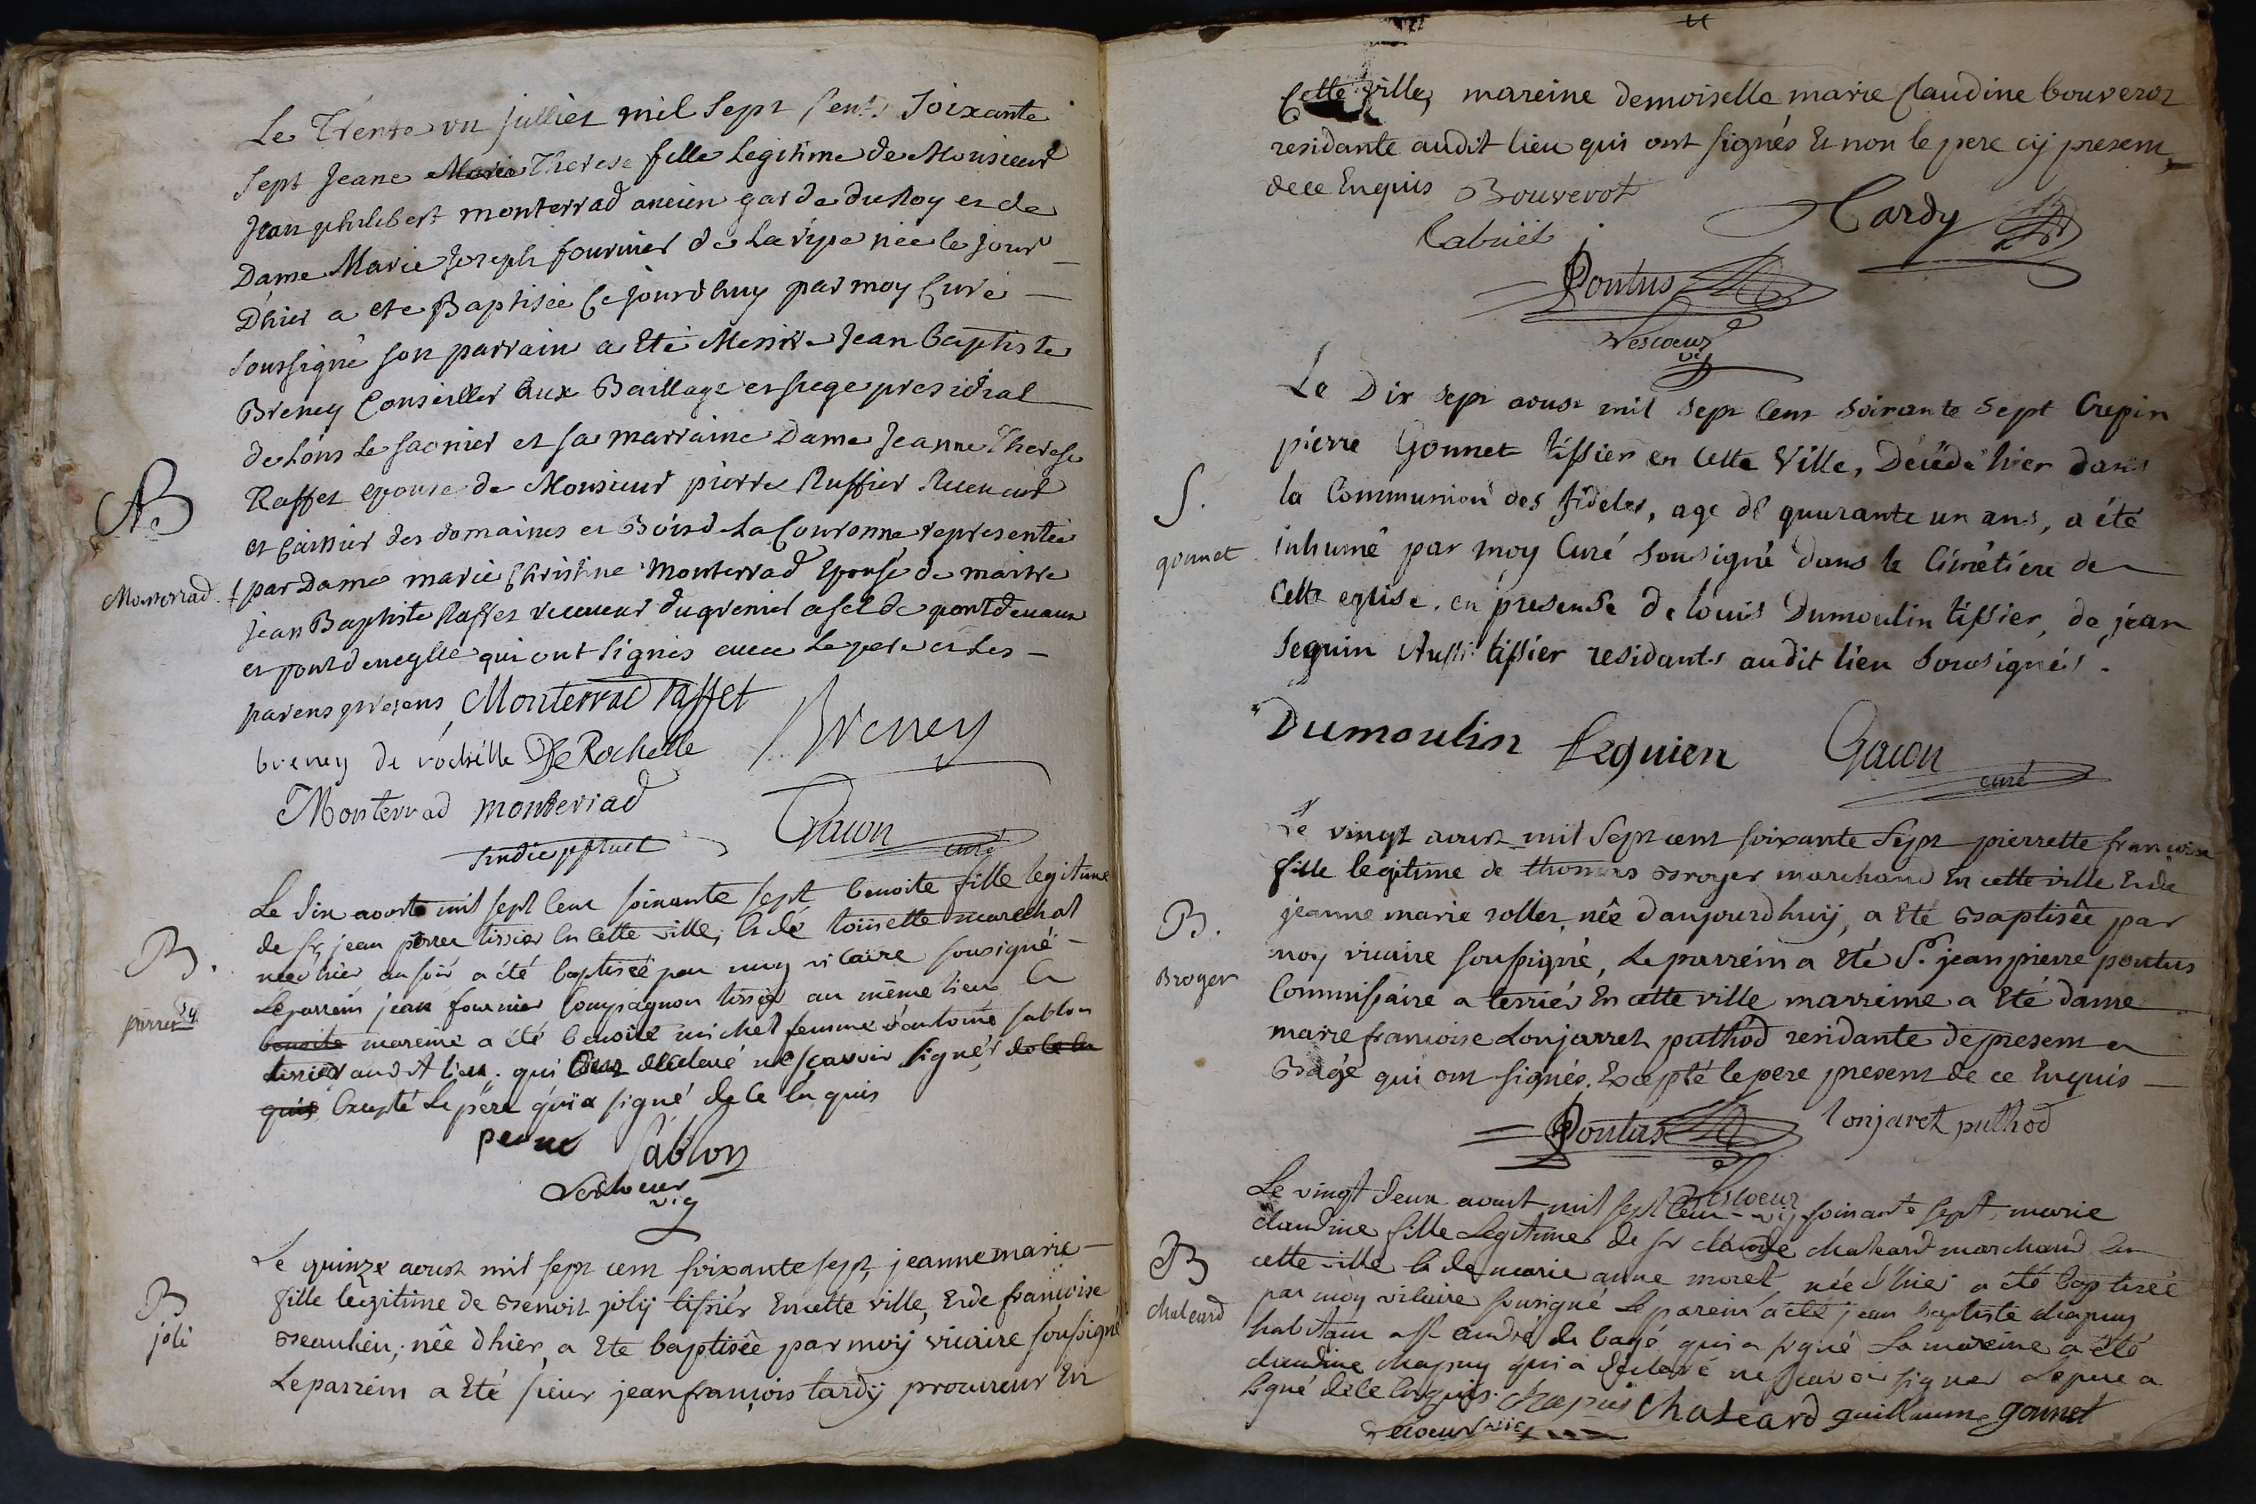 Le Trente un juillet mil Sept Cent Soixante
Sept Jeane Marie Therese fille Legitime de Monsieur
Jean philibert monterrad ancien garde du Roy et de
Dame Marie Joseph fournier de La ripe née le jour
D'hier a ete Baptisée Ce jourdhuy par moy Curé
Soussigné son parrain a Eté Messire Jean Baptiste
Breney Conseiller aux Baillage et siege presidial
de Lons Le saonier et sa marraine Dame Jeanne Therese
Raffet epouse de Monsieur pierre Ruffier Receveur
et Caissier des domaines et Bois de La Couronne representée
par Dame marie Christine Monterrad Epouse de maitre
Jean Baptiste Raffet receveur du grenier a sel de pontdevaux
et pontdeveylle qui ont signés avec Le pere et Les
parens presens Monterrad raffet
breney de rochelle De Rochelle Breney
Monterrad monterrad
sindic pptuel Gacon curé
B
Monterrad
Le dix aoust mil sept cent soixante sept benoite fille legitime
de sr jean perret tissier en cette ville, et de toinette marechal
née hier au soir a été baptisée par moy vicaire sousigné
Le parrein jean fournier compagnon tissier au même lieu et
benoite mareine a été benoite michel femme d'antoine sablon
tissier audit lieu. qui ont declaré ne sçavoir signer de ce en
quis Excepté Le père qui a signé de ce En quis
perret Sablon
Lescoeur
vic
B.
perret
Le quinze aoust mil sept cent soixante sept, jeanne marie
fille legitime de Benoit joly tissiér En cette ville, Et de françoise
Beaulieu, née d'hier, a Eté baptisée par moy vicaire soussigné
Le parrein a Eté sieur jean françois tardy procureur En
B
joli
Cette ville, mareine demoiselle marie Claudine bouverot
residante audit lieu qui ont signés Et non le pere cy present
de ce Enquis Bouverot
Cabuët Tardy
Pontus
Lescoeur
vic
Le Dix sept aoust mil sept Cent soixante sept Crepin
pierre Gonnet tissier en cette Ville, Décédé hier dans
la Communion des fideles, age de quarante un ans, a été
inhumé par moy Curé Sousigné dans le Cimétiére de
Cette eglise. en présense de louis Dumoulin tissier, de jean
Seguin Aussi tissier residants audit lieu Sousignés.
Dumoulin Seguien Gacon
curé
S.
gonnet
Le vingt aoust mil Sept cent soixante Sept pierrette françoise
fille legitime de thomas Broyer marchand En cette ville Et de
jeanne marie rollet, née d'aujourdhuy, a Eté Baptisée par
moy vicaire soussigné, Le parrein a Eté Sr. jean pierre pontus
Commissaire a terrier En cette ville marreine a Eté dame
marie françoise Lonjarret puthod residante de present a
Bâgé qui ont signés. Excepté le pere present de ce Enquis
Pontus lonjaret puthod
Lescoeur
vic
B.
Broyer
Le vingt deux aoust mil sept Cent soixante sept, marie
claudine fille Legitime de sr claude chaleard marchand En
cette ville et de marie anne moret née d'hier a été baptisée
par moy vicaire sousigné Le parein a été jean baptiste chapuy
habitant a St andré de bagé qui a signé La mareine a été
claudine chapuy qui a déclaré ne sçavoir signer Le pere a
signé de ce Enquis. chapuis Chaleard guillaume gonnet
Lescoeur vic
B
chaleard